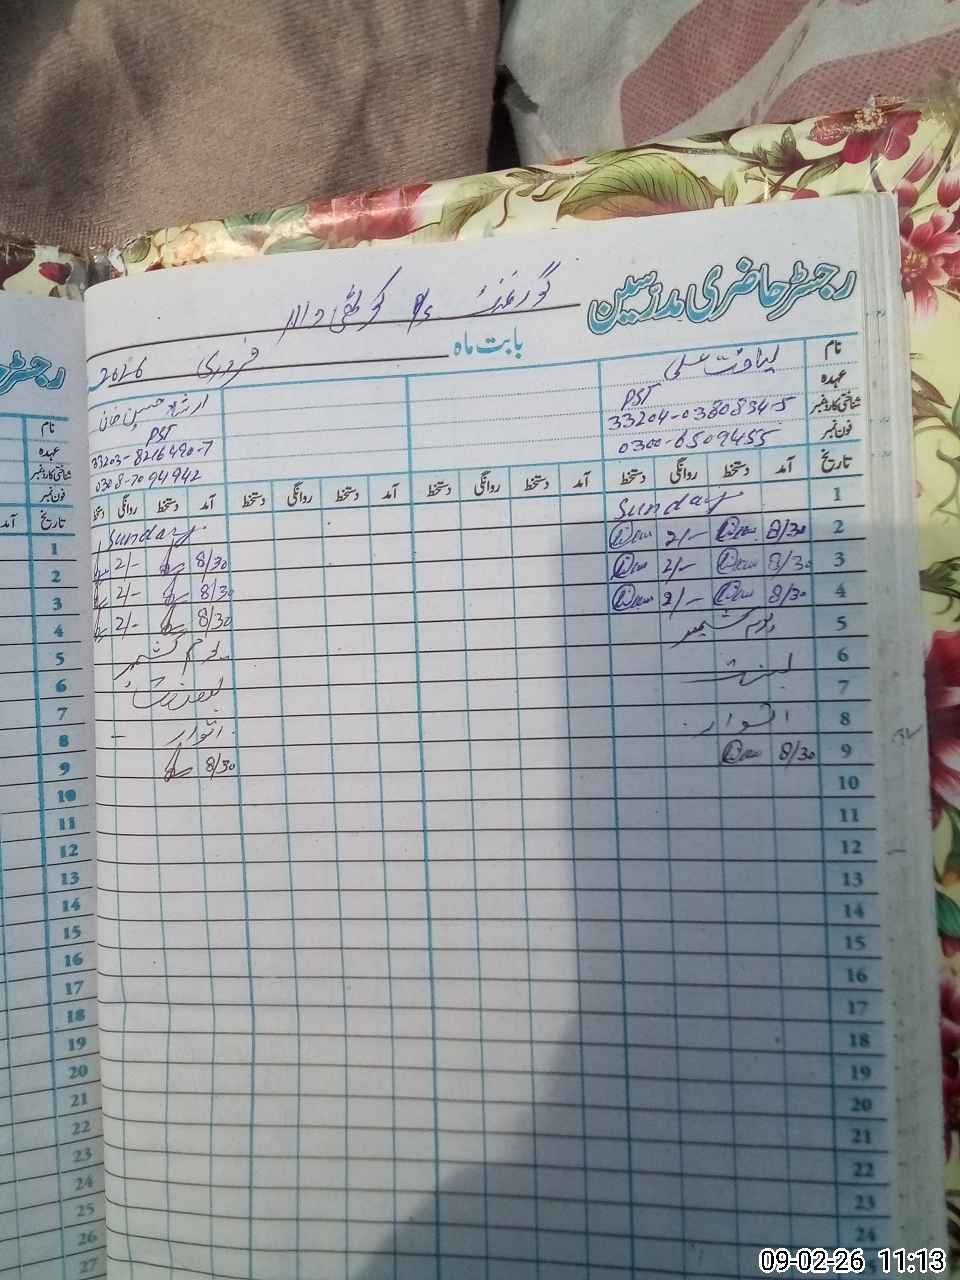 رجسٹر حاضری مدرسین
گورنمنٹ P/S کوٹلی
بابت ماہ فروری 2026
نام لیاقت علی ارشاد حسین خان
عہدہ PST PST
شناختی کارڈ نمبر 33204-0380834-5 33203-8216490-7
فون نمبر 0300-6509455 0308-7094942
تاریخ آمد دستخط روانگی دستخط آمد دستخط روانگی دستخط آمد دستخط روانگی دستخط
1 Sunday Sunday
2 8/30 2/- 8/30 2/-
3 8/30 2/- 8/30 2/-
4 8/30 2/- 8/30 2/-
5 یوم کشمیر یوم کشمیر
6
7
8 اتوار اتوار
9 8/30 8/30
10
11
12
13
14
15
16
17
18
19
20
21
22
23
24
رجسٹر
نام
عہدہ
شناختی کارڈ نمبر
فون نمبر
تاریخ آمد
1
2
3
4
5
6
7
8
9
10
11
12
13
14
15
16
17
18
19
20
21
22
23
24
25
26
27
09-02-26 11:13